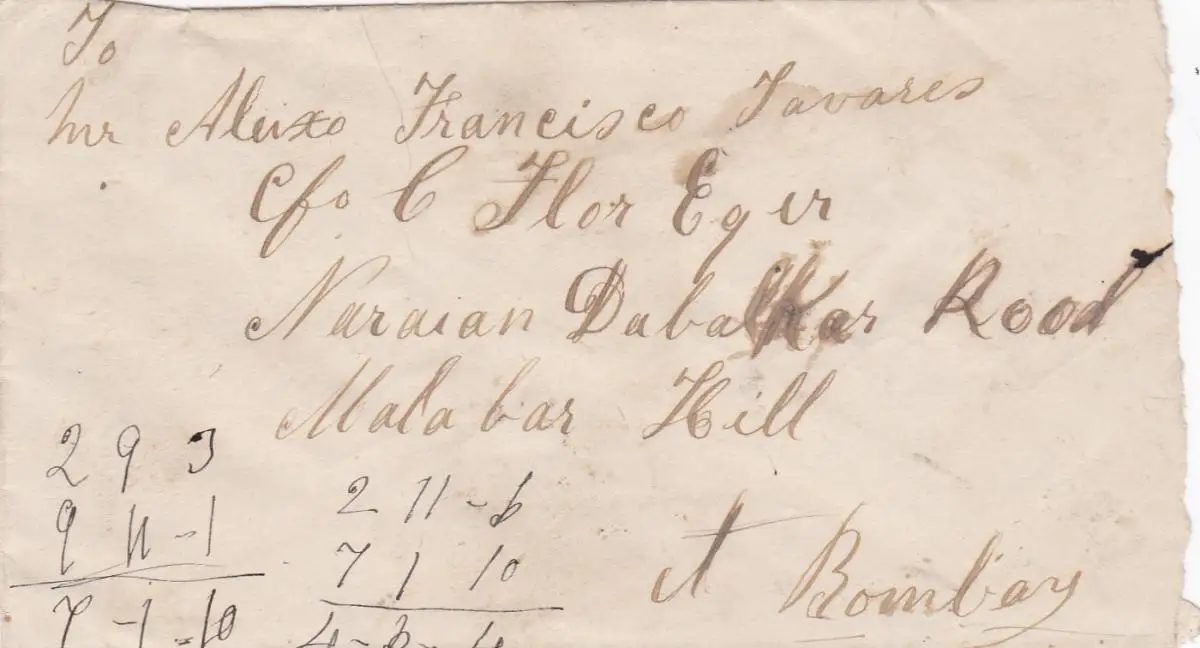 To
Mr Aleixo Francisco Tavares
C/o C Flor Eger
Naraian Dabalkar Road
Malabar Hill
A Bombay
2 9 3
9 11 - 1
7 - 1 - 10
2 11 - 6
7 1 10